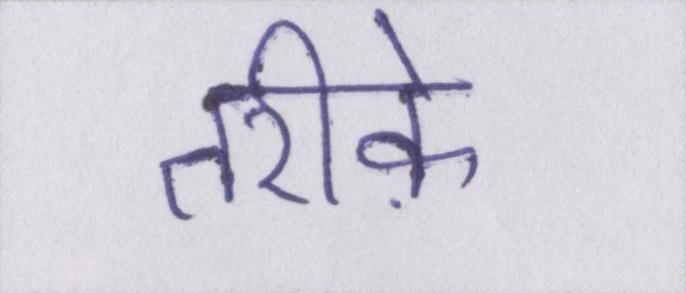 तरीक़े